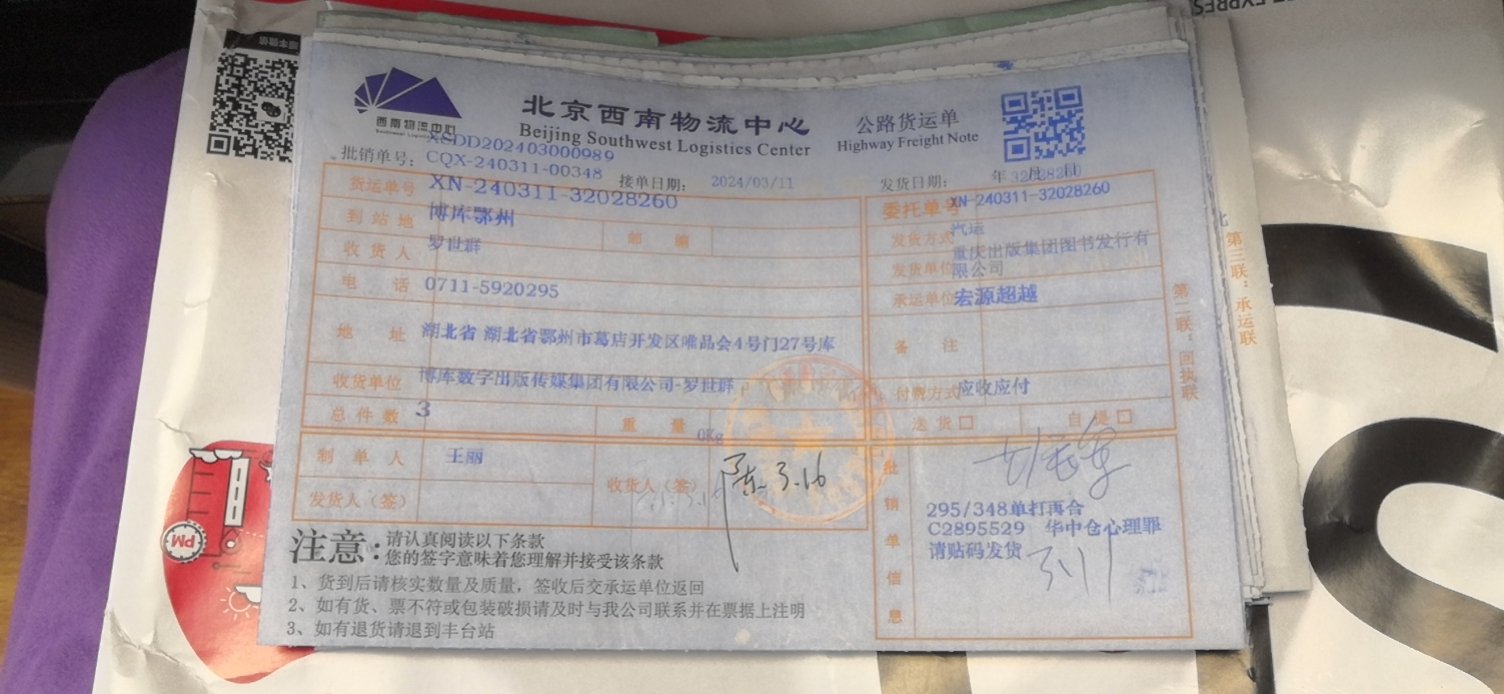 西南物流中心
北京西南物流中心
Beijing Southwest Logistics Center
公路货运单
Highway Freight Note
XSDD202403000989
批销单号：CQX-240311-00348
接单日期： 2024/03/11
发货日期： 年 月 日
32028260
货运单号 XN-240311-32028260
委托单号 XN-240311-32028260
到站地 博库鄂州
邮编
发货方式 汽运
收货人 罗世群
发货单位 重庆出版集团图书发行有限公司
电话 0711-5920295
承运单位 宏源超越
地址 湖北省 湖北省鄂州市葛店开发区唯品会4号门27号库
备注
收货单位 博库数字出版传媒集团有限公司-罗世群
付费方式 应收应付
总件数 3
重量 0Kg
送货□ 自提□
制单人 王丽
收货人（签） 陈 3.16
发货人（签）
批销单信息
295/348单打再合
C2895529 华中仓心理罪
请贴码发货
3.11
注意：
请认真阅读以下条款
您的签字意味着您理解并接受该条款
1、货到后请核实数量及质量，签收后交承运单位返回
2、如有货、票不符或包装破损请及时与我公司联系并在票据上注明
3、如有退货请退到丰台站
第二联：回执联
第三联：承运联
PM